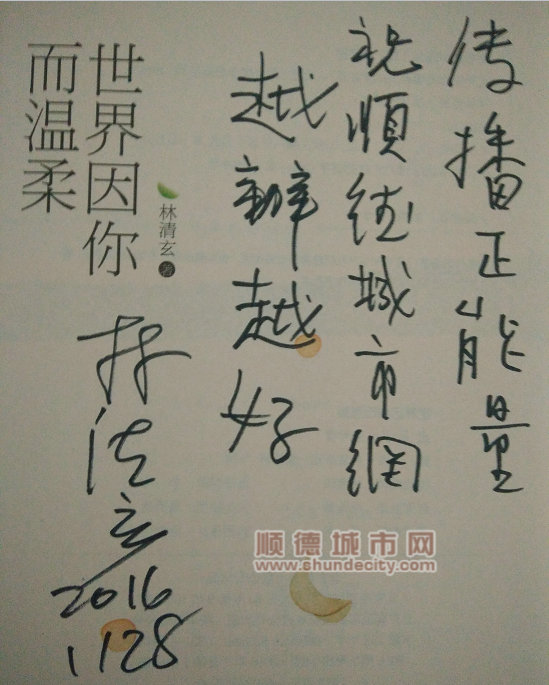 传播正能量
祝順德城市網
越辦越好
世界因你
而温柔
林清玄 著
林清玄
2016
1128
顺德城市网
www.shundecity.com